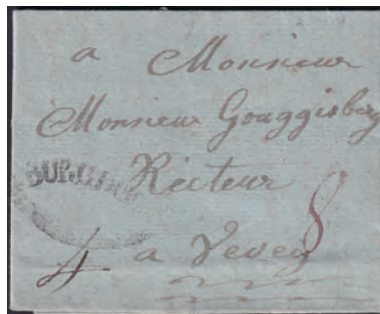 a Monsieur
Monsieur Gouggisberg
Recteur
8
4 a Vevey